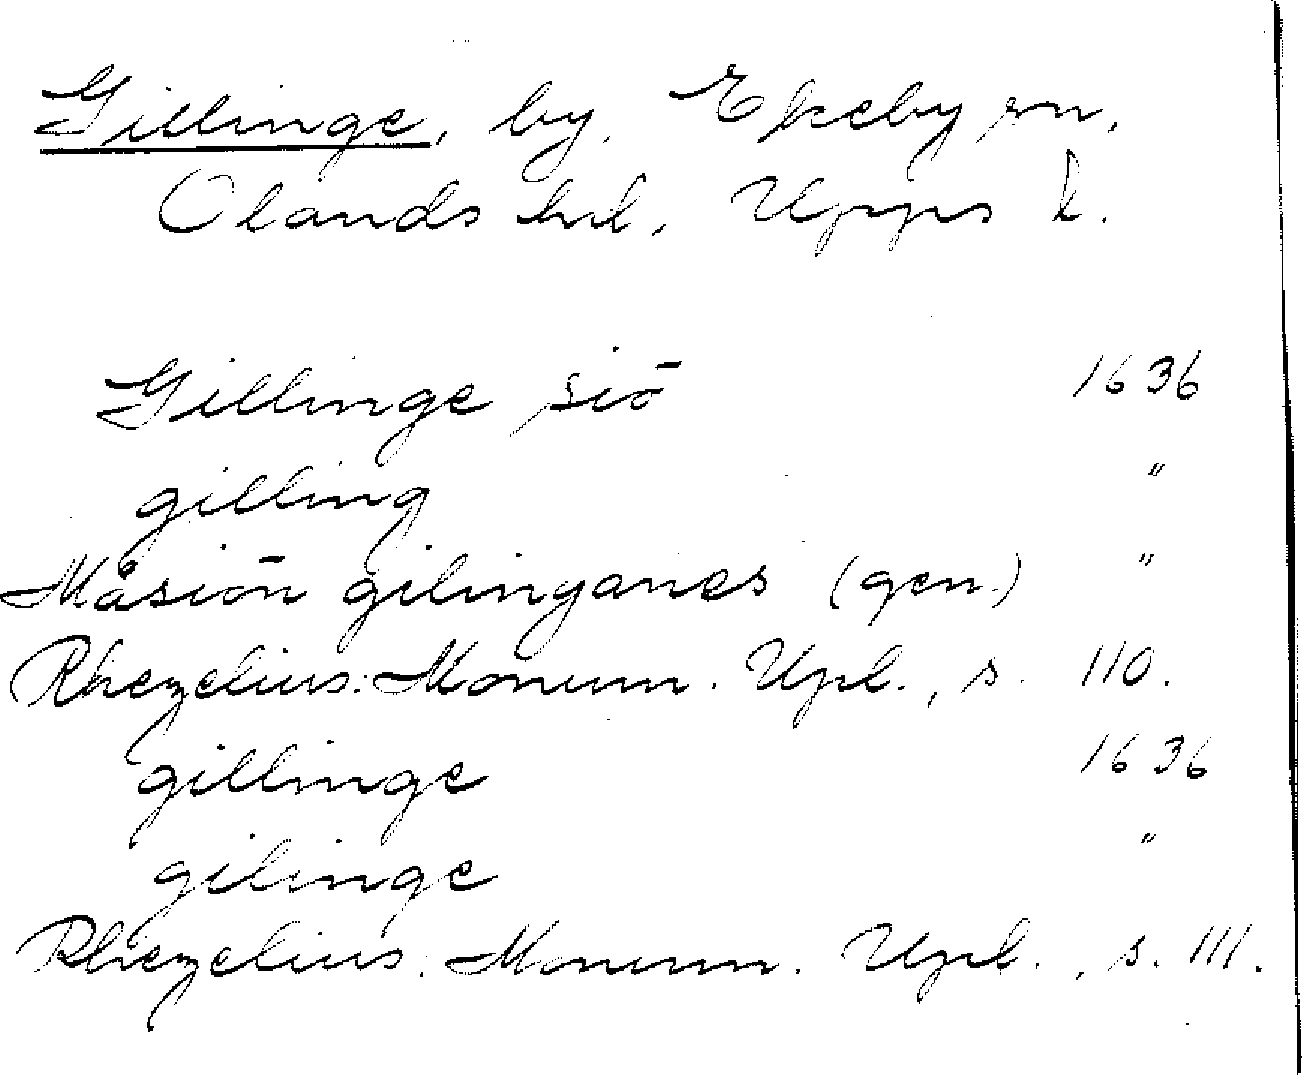 Gillinge, by, Ekeby sn,
Olands hd, Upps l.
Gillinge siō 1636
gilling "
Måsiōn gilinganes (gen.) "
Rhezelius: Monum. Upl., s. 110.
gillinge 1636
gilinge "
Rhezelius: Monum. Upl., s. 111.